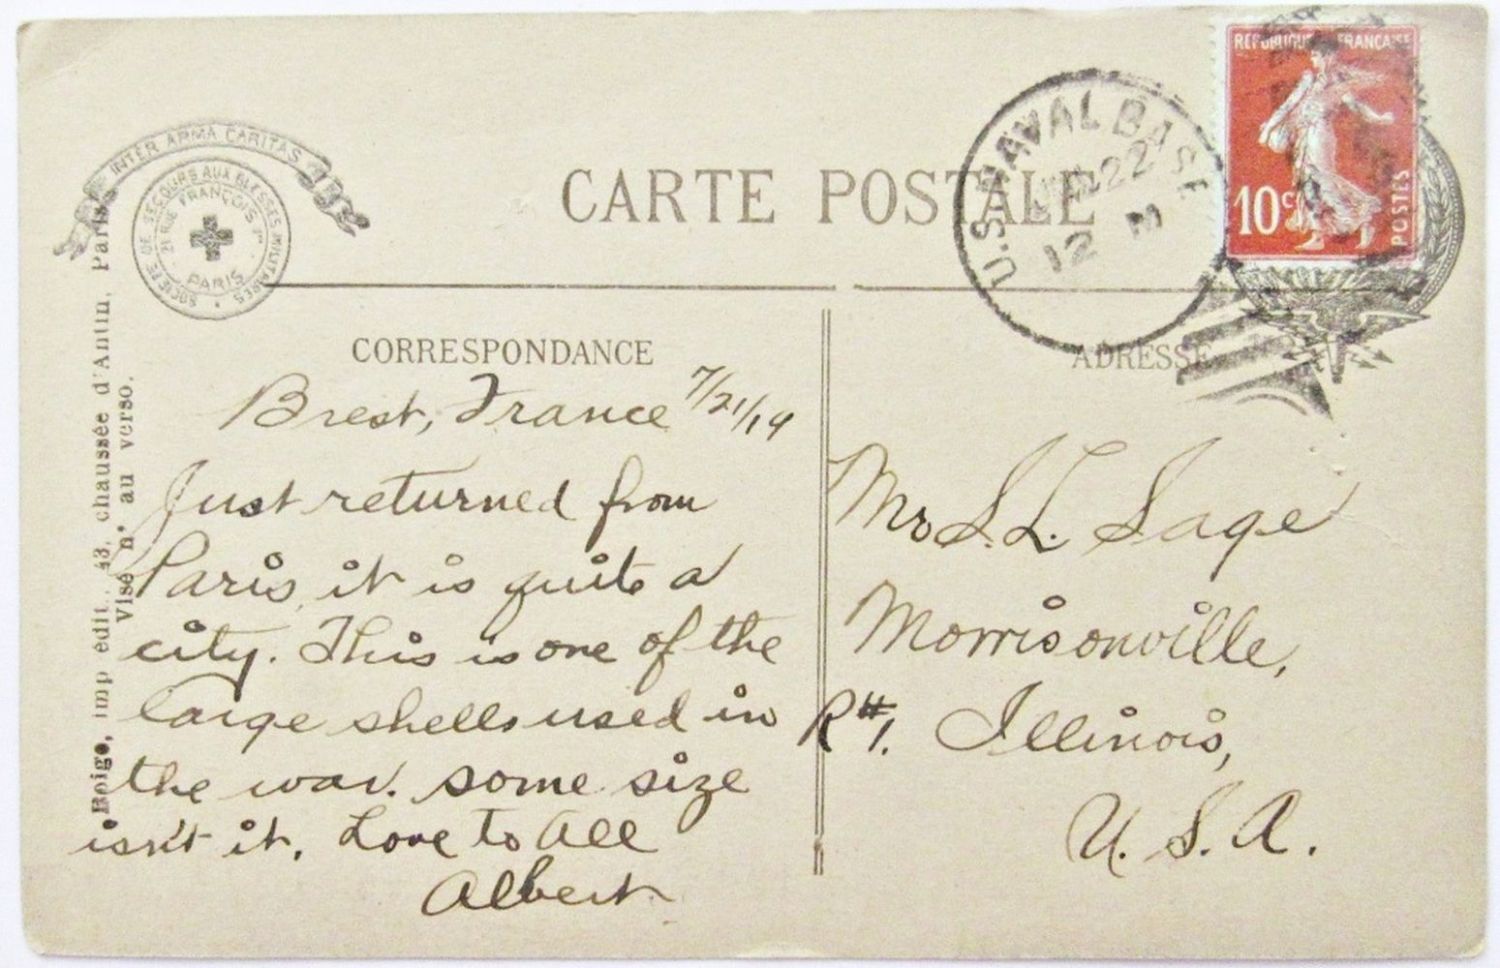 INTER ARMA CARITAS
SOCIÉTÉ DE SECOURS AUX BLESSÉS MILITAIRES
21 RUE FRANÇOIS 1er
PARIS
CARTE POSTALE
U.S. NAVAL BASE
22
12 M
REPUBLIQUE FRANÇAISE
10c
POSTES
CORRESPONDANCE
ADRESSE
Brest, France 7/21/19
Just returned from
Paris, it is quite a
city. This is one of the
large shells used in
the war. some size
isn't it. Love to all
Albert
Mr S.L. Sage
Morrisonville,
R#1. Illinois,
U.S.A.
imp édit., 43, chaussée d'Antin, Paris.
Visé n° au verso.